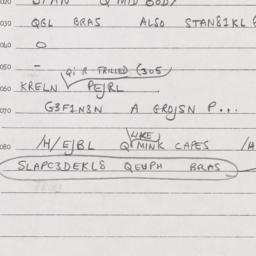 020 Q MID BODY
030 QGL BRAS ALSO STAN81KL
040 O
050 -
qi R TRILLED (305
060 KRELN PEJRL
070 G3F1N3N A GROJSN P...
LIKE
080 /H/EJBL Q MINK CAPES /H
SLAPC3DEKL8 QEUPH BRAS